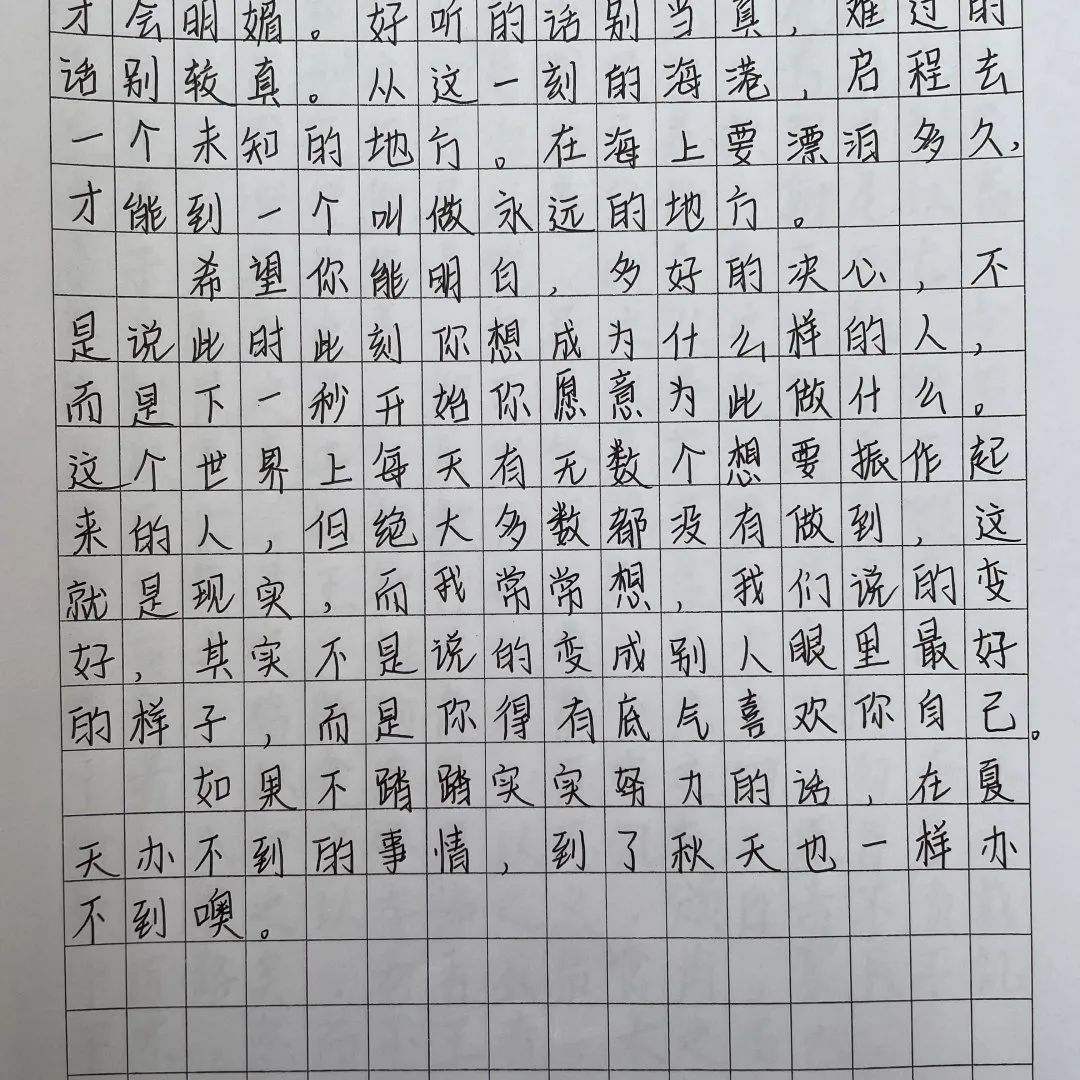 才会明媚。好听的话别当真，难过的
话别较真。从这一刻的海港，启程去
一个未知的地方。在海上要漂泊多久，
才能到一个叫做永远的地方。
希望你能明白，多好的决心，不
是说此时此刻你想成为什么样的人，
而是下一秒开始你愿意为此做什么。
这个世界上每天有无数个想要振作起
来的人，但绝大多数都没有做到，这
就是现实，而我常常想，我们说的变
好，其实不是说的变成别人眼里最好
的样子，而是你得有底气喜欢你自己。
如果不踏踏实实努力的话，在夏
天办不到的事情，到了秋天也一样办
不到噢。